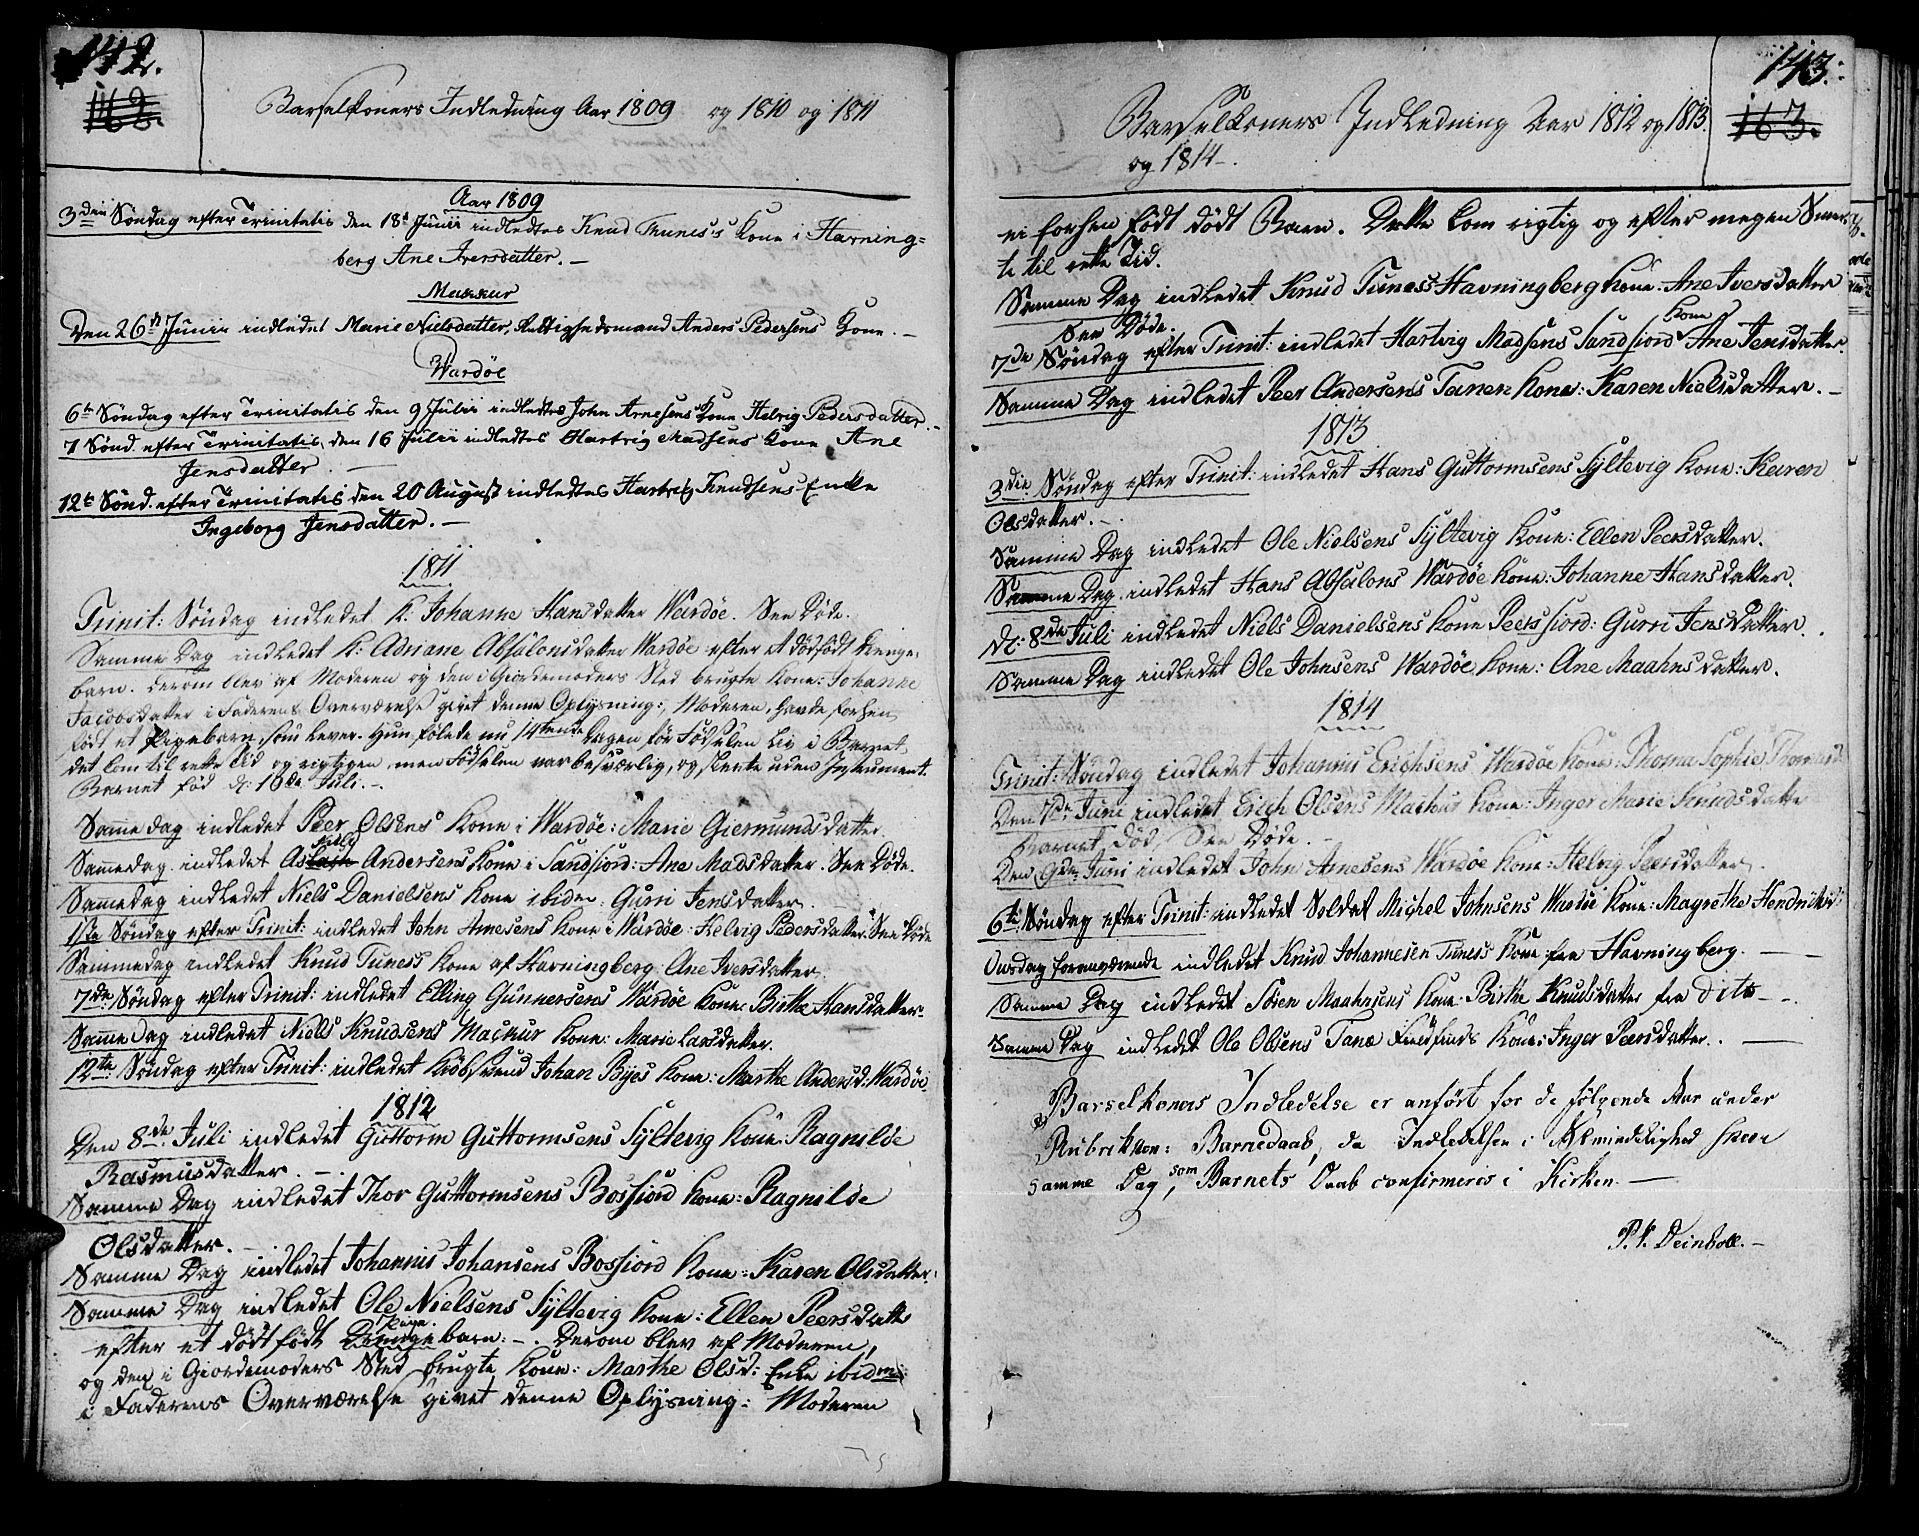 142.
162.
Barselkoners Indledning Aar 1809 og 1810 og 1811
Aar 1809
3die Søndag efter Trinitatis den 18de Junii indledtes Knud Thunes's Kone i Havning=
berg Ane Iversdatter. —
Makkur
Den 26de Junii indledet Marie Nielsdatter, Rettighedsmand Anders Pedersens Kone. —
Wardöe
6te Søndag efter Trinitatis den 9 Julii indledtes John Arnesens Kone Helvig Pedersdatter. —
7 Sønd. efter Trinitatis den 16 Julii indledtes Hartvig Madsens Kone Ane
Jensdatter. —
12te Sønd. efter Trinitatis den 20 August indledtes Hartvig Knudsens Enke
Ingeborg Jensdatter. —
1811
Trinit: Søndag indledet K. Johanne Hansdatter Wardöe. See Døde.
Samme Dag indledet K: Adriane Absalonsdatter Wardöe efter et dödfödt Drenge:
barn. Derom blev af Moderen og den i Giordemoders Sted brugte Kone: Johanne
Jacobsdatter i Faderens Overværelse givet denne Oplysning: Moderen havde forhen
født et Pigebarn, som lever. Hun følede nu 14tende Dagen før Fødselen Liv i Barnet,
det kom til rette Tid og rigtigen, men Födselen var besværlig, og skeete uden Instrument.
Barnet fød d: 10de Juli. —
Samme dag indledet Peer Olsens Kone i Wardöe: Marie Giermundsdatter.
Sammedag indledet As Andersens Kone i Sandfiord: Ane Madsdatter. See Døde.
Sammedag indledet Niels Danielsens Kone ibiden: Gurri Jensdatter.
1ste Søndag efter Trinit: indledet John Arnesens Kone i Wardöe: Helvig Pedersdatter. See Døde
Sammedag indledet Knud Tuness Kone af Havningberg: Ane Iversdatter.
7de Søndag efter Trinit: indledet Elling Gunnersens Wardöe Kone: Birthe Hansdatter.
Samme dag indledet Niels Knudsens Mackur Kone: Marie Larsdatter.
12te Søndag efter Trinit: indledet Kiøbsvend Johan Byes Kone: Marthe Andersd: Wardöe
1812
Den 8de Juli indledet Guttorm Guttormsens Syltevig Kone: Ragnilde
Rasmusdatter. —
Samme Dag indledet Thor Guttormsens Bosfiord Kone: Ragnilde
Olsdatter. —
Samme Dag indledet Johannis Johansens Bosfiord Kone: Karen Olsdatter.
Samme Dag indledet Ole Nielsens Syltevig Kone: Ellen Peersdatter
efter et dödfödt Drenge Pige barn: —. Derom blev af Moderen,
og den i Giordemoders Sted brugte Kone: Marthe Olsd: Enke ibidm:
i Faderens Overværelse givet denne Oplysning: Moderen
143.
163.
Barselkoners Indledning Aar 1812 og 1813.
og 1814 —.
ei forhen født dødt Barn. Dette kom rigtig og efter megen Smer=
te til rette Tid.
Samme Dag indledet Knud Tuness Havningberg Kone: Ane Iversdatter
See Døde.
7de Søndag efter Trinit: indledet Hartvig Madsens Sandfiord Kone Ane Jensdatter.
Samme Dag indledet Peer Andersens Tanen Kone: Karen Nielsdatter. —
1813
3die Søndag efter Trinit: indledet Hans Guttormsens Syltevig Kone: Karen
Olsdatter. —.
Samme Dag indledet Ole Nielsens Syltevig Kone: Ellen Peersdatter.
Samme Dag indledet Hans Absalons Wardöe Kone: Johanne Hansdatter.
d: 8de Juli indledet Niels Danielsens Kone Peersfiord: Gurri Jensdatter.
Samme Dag indledet Ole Johnsens Wardöe Kone: Ane Maahnsdatter.
1814
Trinit: Søndag indledet Johannis Erichsens Wardöe Kone: Thoma Sophie Thomasd:
Den 7de Juni indledet Erich Olsens Mackur Kone: Inger Marie Knudsdatter
Barnet død, See Døde. —
Den 9de Juni indledet John Arnesens Wardöe Kone: Helvig Peersdatter.
6te Søndag efter Trinit: indledet Soldat Michel Johnsens Wardöe Kone: Magrethe Hendriksd:
Onsdag foranværende indledet Knud Johannesen Tuness Kone fra Havningberg. —
Samme Dag indledet Søren Maahnsens Kone: Birthe Knudsdatter fra dito —.
Samme Dag indledet Ole Olsens Tanæ Fieldfinds Kone: Inger Peersdatter. —
Barselkoners Indledelse er anført for de følgende Aar under
Rubrikken: Barnedaab, da Indledelsen i Almindelighed skeer
samme Dag, som Barnets Daab confirmeres i Kirken. —
P. V. Deinboll. —